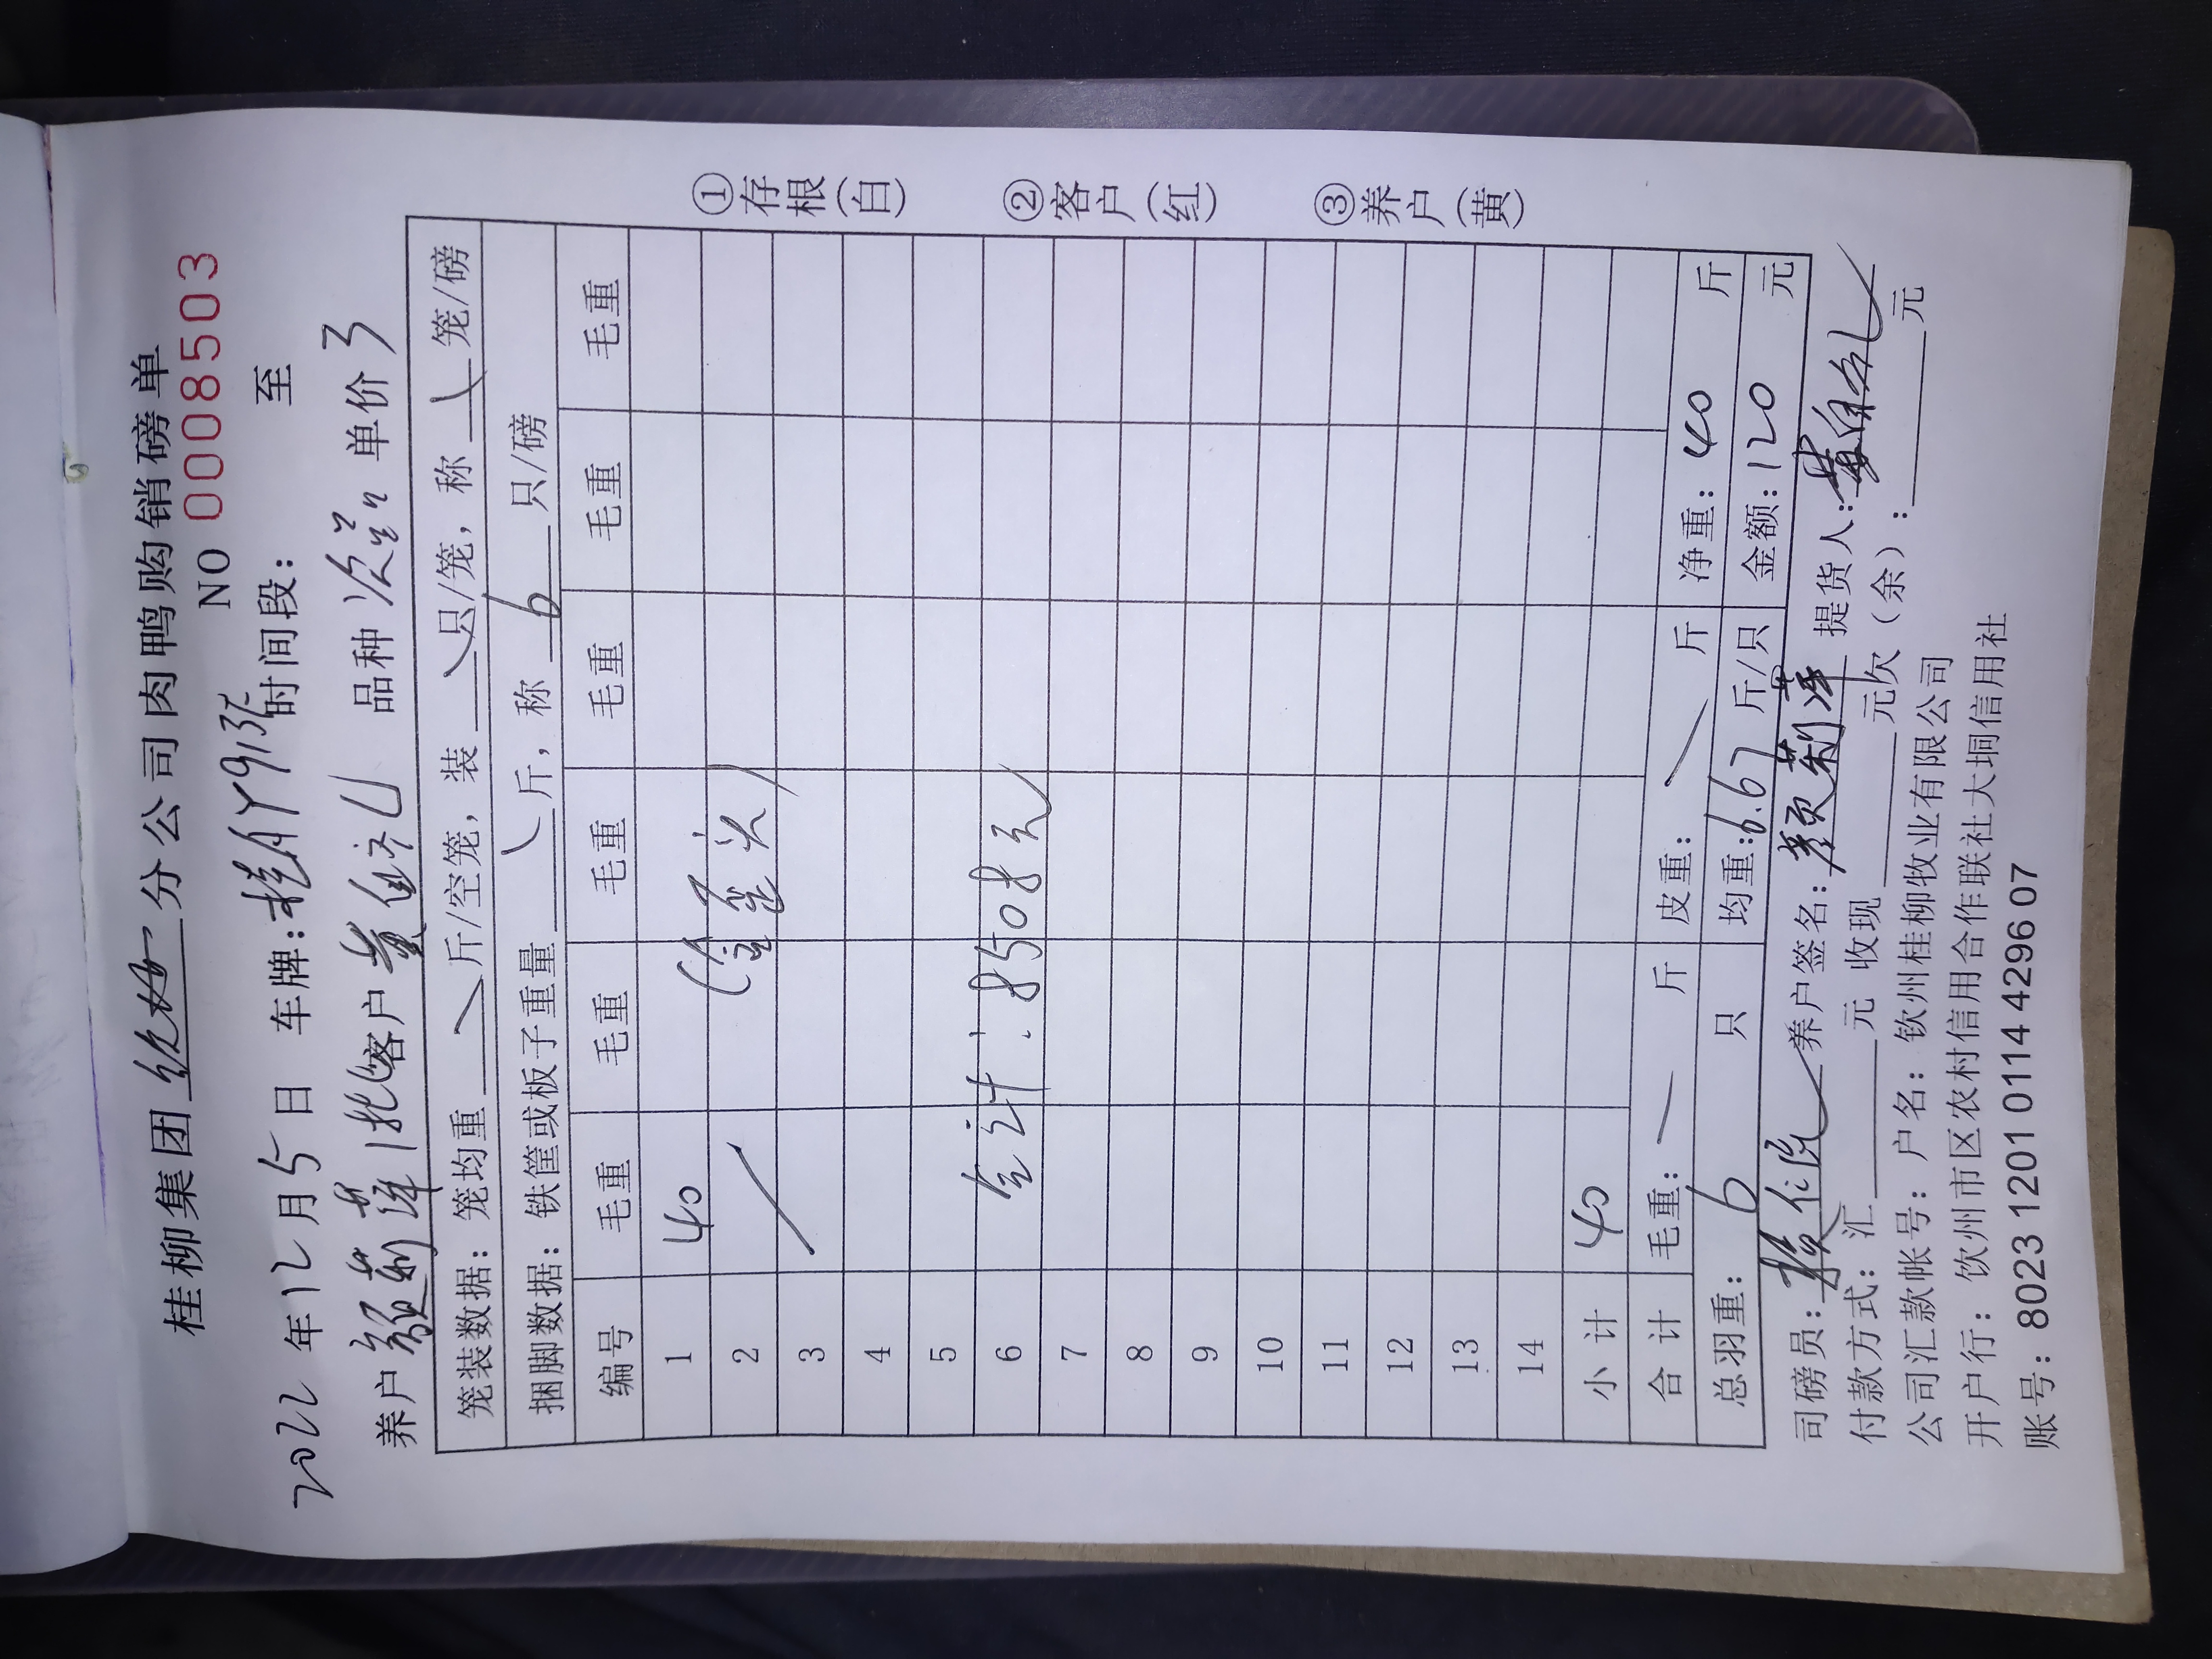 桂柳集团 分公司肉鸭购销磅单
NO 0008503
2022年12月5日 车牌:桂AY913 时间段: 至
养户颜莉萍 客户黄自礼 品种次品 单价3
笼装数据: 笼均重 斤/空笼, 装 只/笼, 称 笼/磅
捆脚数据: 铁筐或板子重量 斤, 称 6 只/磅
编号 毛重 毛重 毛重 毛重 毛重 毛重
1 40
2 (歪头)
3
4
5
6 合计:8508元
7
8
9
10
11
12
13
14
小计 40
合计 毛重: 斤 皮重: 斤 净重:40 斤
总羽重: 6 只 均重:6.67 斤/只 金额:120 元
司磅员: 养户签名:颜莉萍 提货人:黄自礼
付款方式: 汇 元 收现 元欠(余): 元
公司汇款帐号: 户名: 钦州桂柳牧业有限公司
开户行: 饮州市区农村信用合作联社大垌信用社
账号: 8023 1201 0114 4296 07
①存根(白)
②客户(红)
③养户(黄)